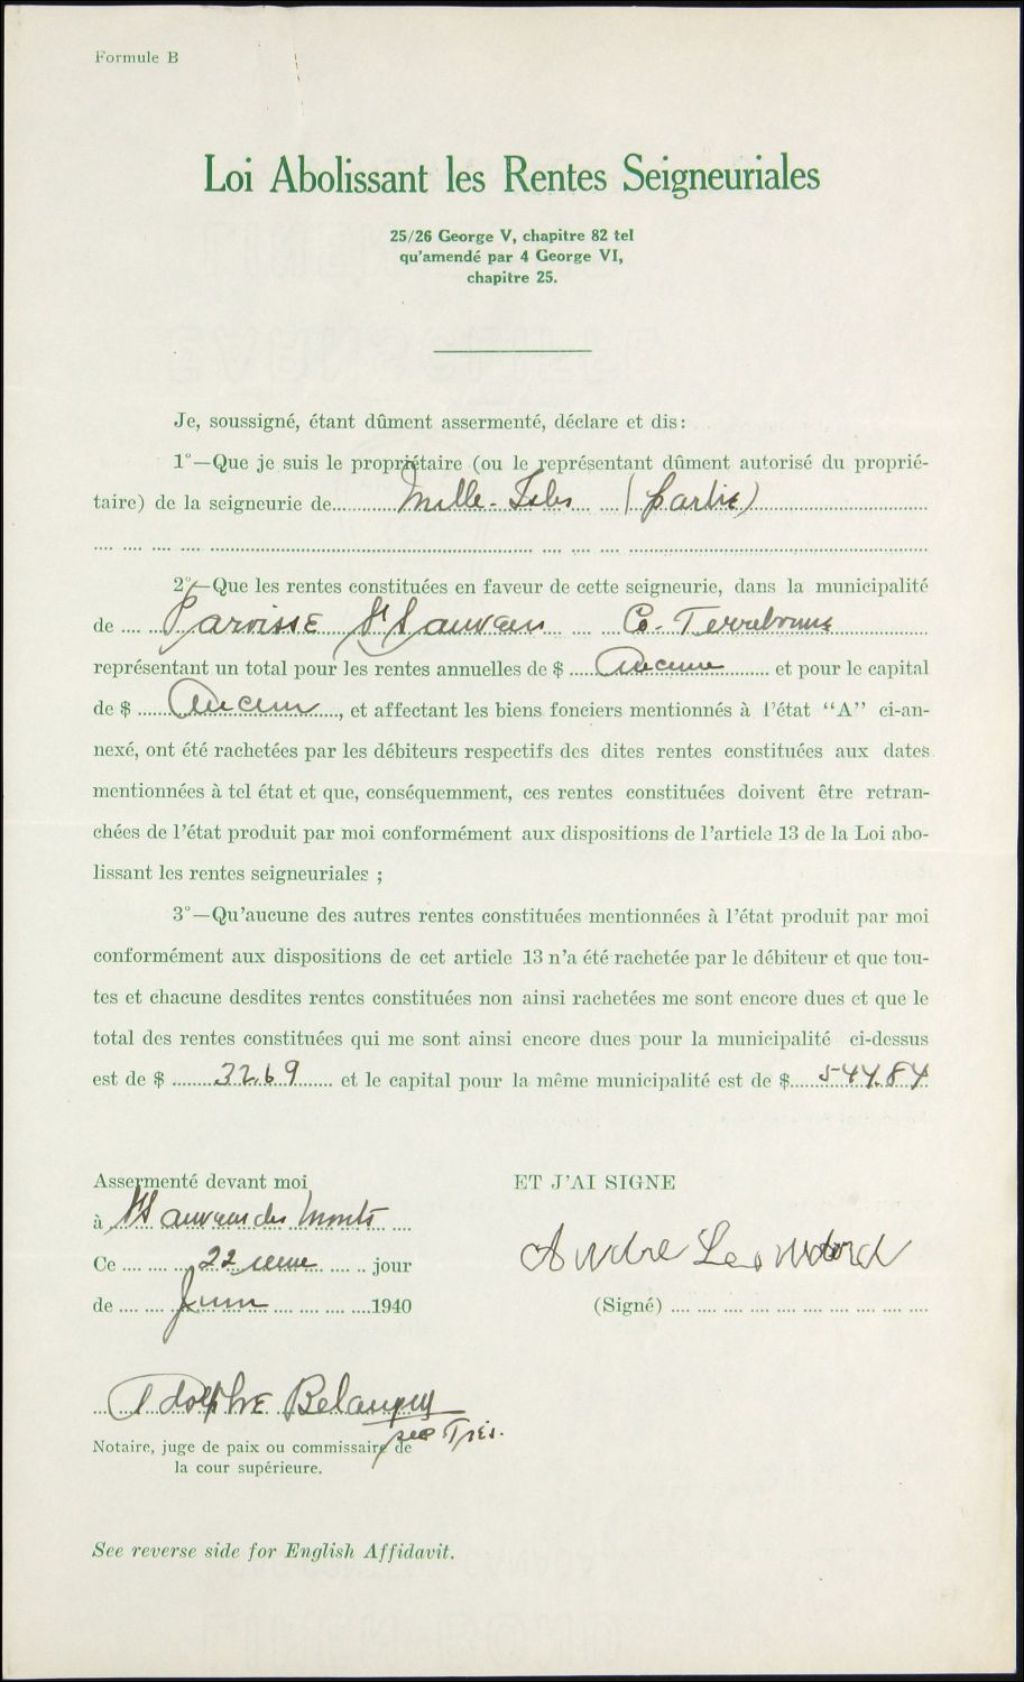 Formule B
Loi Abolissant les Rentes Seigneuriales
25/26 George V, chapitre 82 tel
qu'amendé par 4 George VI,
chapitre 25.
Je, soussigné, étant dûment assermenté, déclare et dis:
1°—Que je suis le propriétaire (ou le représentant dûment autorisé du proprié-
taire) de la seigneurie de Mille-Isles (partie)
2°—Que les rentes constituées en faveur de cette seigneurie, dans la municipalité
de Paroisse St Sauveur Co. Terrebonne
représentant un total pour les rentes annuelles de $ Aucune et pour le capital
de $ Aucun, et affectant les biens fonciers mentionnés à l'état "A" ci-an-
nexé, ont été rachetées par les débiteurs respectifs des dites rentes constituées aux dates
mentionnées à tel état et que, conséquemment, ces rentes constituées doivent être retran-
chées de l'état produit par moi conformément aux dispositions de l'article 13 de la Loi abo-
lissant les rentes seigneuriales ;
3°—Qu'aucune des autres rentes constituées mentionnées à l'état produit par moi
conformément aux dispositions de cet article 13 n'a été rachetée par le débiteur et que tou-
tes et chacune desdites rentes constituées non ainsi rachetées me sont encore dues et que le
total des rentes constituées qui me sont ainsi encore dues pour la municipalité ci-dessus
est de $ 32.69 et le capital pour la même municipalité est de $ 544.84
Assermenté devant moi
ET J'AI SIGNE
à St Sauveur des Monts
Andre
Ce 22 ieme jour
de Juin 1940
(Signé)
Adolphe Belanger
sec Trés.
Notaire, juge de paix ou commissaire de
la cour supérieure.
See reverse side for English Affidavit.